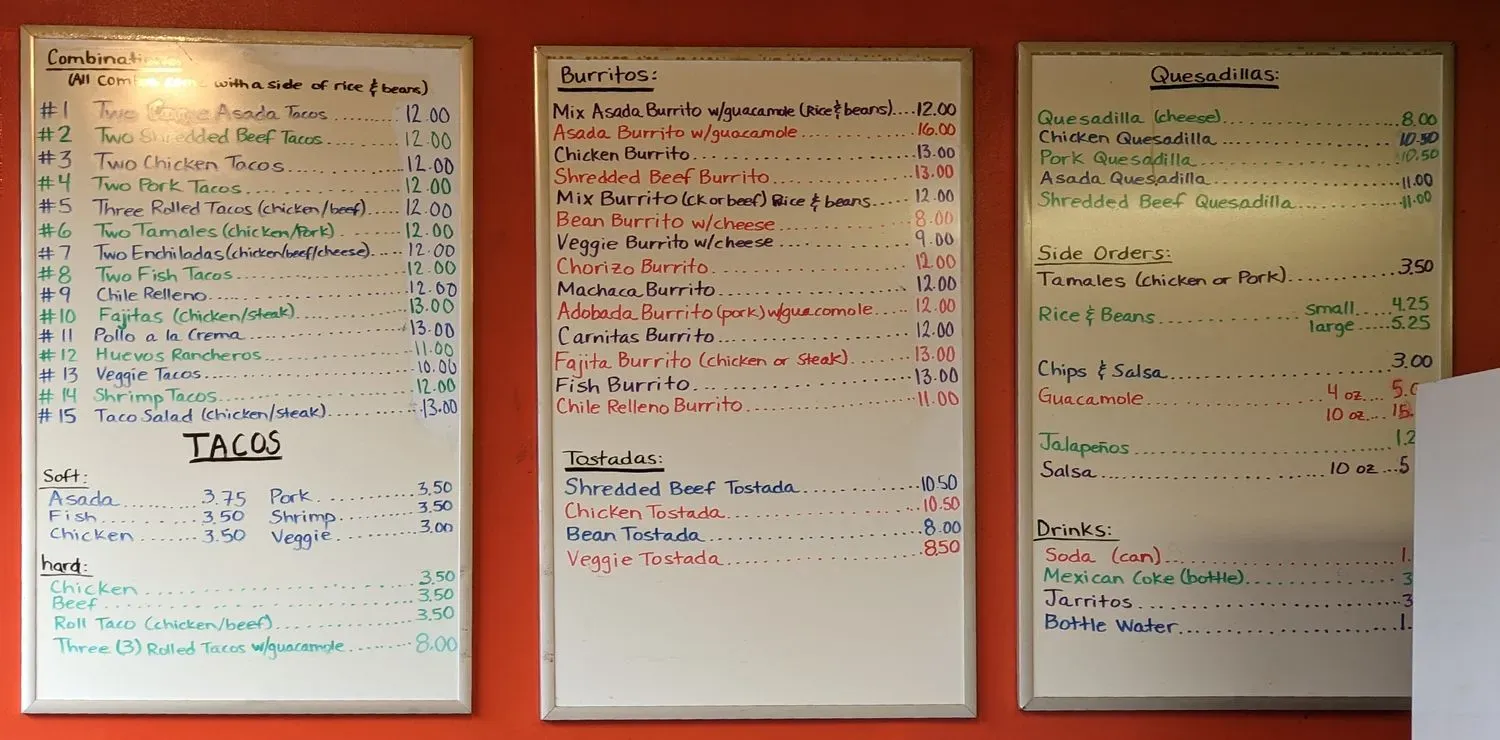 Combinati
(All Com with a side of rice & beans)
#1 Two Carne Asada Tacos........ 12.00
#2 Two Shredded Beef Tacos........ 12.00
#3 Two Chicken Tacos........ 12.00
#4 Two Pork Tacos........ 12.00
#5 Three Rolled Tacos (chicken/beef)..... 12.00
#6 Two Tamales (chicken/Pork)........ 12.00
#7 Two Enchiladas (chicken/beef/cheese)..... 12.00
#8 Two Fish Tacos........ 12.00
#9 Chile Relleno........ 12.00
#10 Fajitas (chicken/steak)........ 13.00
#11 Pollo a la Crema........ 13.00
#12 Huevos Rancheros........ 11.00
#13 Veggie Tacos........ 10.00
#14 Shrimp Tacos........ 12.00
#15 Taco Salad (chicken/steak)........ 13.00
TACOS
Soft:
Asada........ 3.75 Pork........ 3.50
Fish........ 3.50 Shrimp........ 3.50
Chicken.... 3.50 Veggie........ 3.00
hard:
Chicken........ 3.50
Beef........ 3.50
Roll Taco (chicken/beef)........ 3.50
Three (3) Rolled Tacos w/guacamole........ 8.00
Burritos:
Mix Asada Burrito w/guacamole (Rice & beans)....12.00
Asada Burrito w/guacamole........ 16.00
Chicken Burrito........ 13.00
Shredded Beef Burrito........ 13.00
Mix Burrito (ck or beef) Rice & beans.... 12.00
Bean Burrito w/cheese........ 8.00
Veggie Burrito w/cheese........ 9.00
Chorizo Burrito........ 12.00
Machaca Burrito........ 12.00
Adobada Burrito (pork) w/guacomole.... 12.00
Carnitas Burrito........ 12.00
Fajita Burrito (chicken or steak)........ 13.00
Fish Burrito........ 13.00
Chile Relleno Burrito........ 11.00
Tostadas:
Shredded Beef Tostada........ 10.50
Chicken Tostada........ 10.50
Bean Tostada........ 8.00
Veggie Tostada........ 8.50
Quesadillas:
Quesadilla (cheese)........ 8.00
Chicken Quesadilla........ 10.50
Pork Quesadilla........ 10.50
Asada Quesadilla........ 11.00
Shredded Beef Quesadilla........ 11.00
Side Orders:
Tamales (chicken or Pork)........ 3.50
Rice & Beans........ small.... 4.25
large.....5.25
Chips & Salsa........ 3.00
Guacamole........ 4 oz.... 5.
10 oz.... 15.
Jalapeños........ 1.2
Salsa........ 10 oz...5
Drinks:
Soda (can)........ 1.
Mexican Coke (bottle)........ 3
Jarritos........ 3
Bottle Water........ 1.